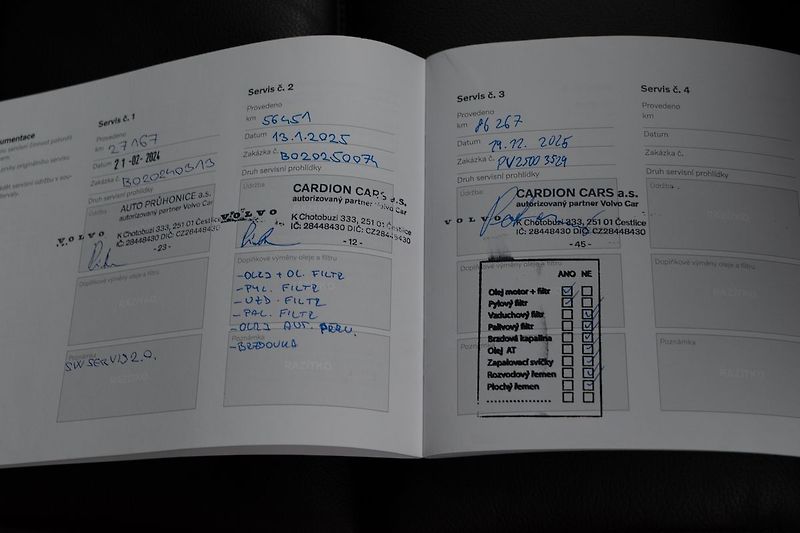 umentace
Servis č. 1
Provedeno
km 27167
Datum 21-02-2024
Zakázka č. B020240313
Druh servisní prohlídky
Údržba
AUTO PRŮHONICE a.s.
autorizovaný partner Volvo Car
VOLVO
K Chotobuzi 333, 251 01 Čestlice
IČ: 28448430 DIČ: CZ28448430
- 23 -
Doplňkové výměny oleje a filtru
RAZÍTKO
Poznámka
SW SERVIS 2.0.
Servis č. 2
Provedeno
km 56451
Datum 13.1.2025
Zakázka č. B020250074
Druh servisní prohlídky
Údržba
CARDION CARS a.s.
autorizovaný partner Volvo Car
VOLVO
K Chotobuzi 333, 251 01 Čestlice
IČ: 28448430 DIČ: CZ28448430
- 12 -
Doplňkové výměny oleje a filtru
- OLEJ + OL. FILTR
- PYL. FILTR
- VZD. FILTR
- PAL. FILTR
- OLEJ AUT. PŘEV.
Poznámka
- BRZDOVKA
RAZÍTKO
Servis č. 3
Provedeno
km 86267
Datum 19.12.2025
Zakázka č. PV25003529
Druh servisní prohlídky
Údržba
CARDION CARS a.s.
autorizovaný partner Volvo Car
VOLVO
K Chotobuzi 333, 251 01 Čestlice
IČ: 28448430 DIČ: CZ28448430
- 45 -
ANO NE
Olej motor + filtr
Pylový filtr
Vzduchový filtr
Palivový filtr
Brzdová kapalina
Olej AT
Zapalovací svíčky
Rozvodový řemen
Plochý řemen
Servis č. 4
Provedeno
km
Datum
Zakázka č.
Druh servisní prohlídky
Údržba
Doplňkové výměny oleje a filtru
RAZÍTKO
Poznámka
RAZÍTKO